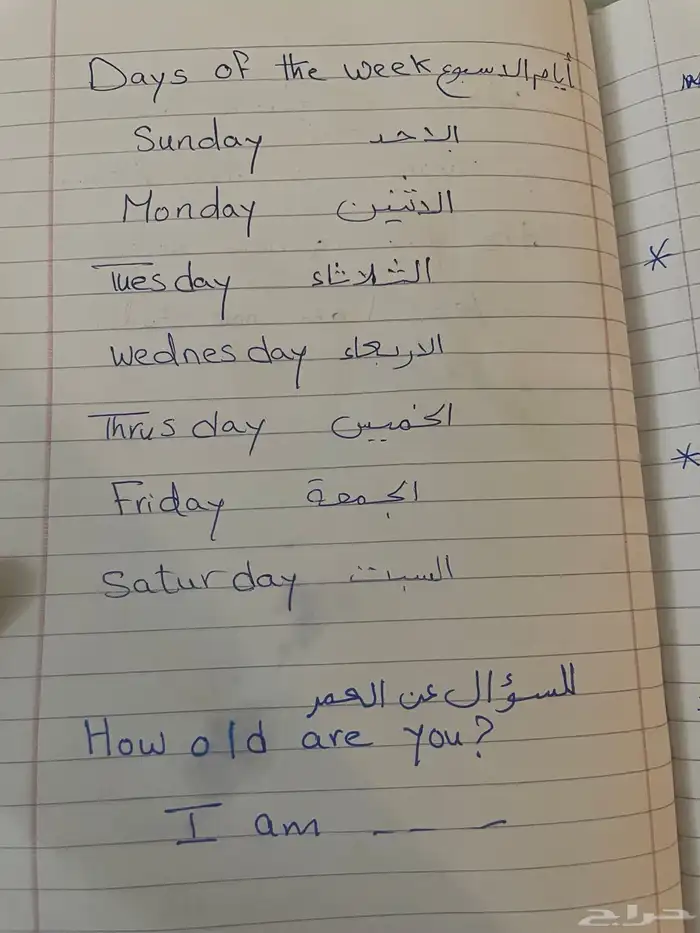 Days of the week أيام الاسبوع
Sunday الاحد
Monday الاثنين
Tuesday الثلاثاء
Wednesday الاربعاء
Thrusday الخميس
Friday الجمعة
Saturday السبت
للسؤال عن العمر
How old are you?
I am ---
*
*
حراج